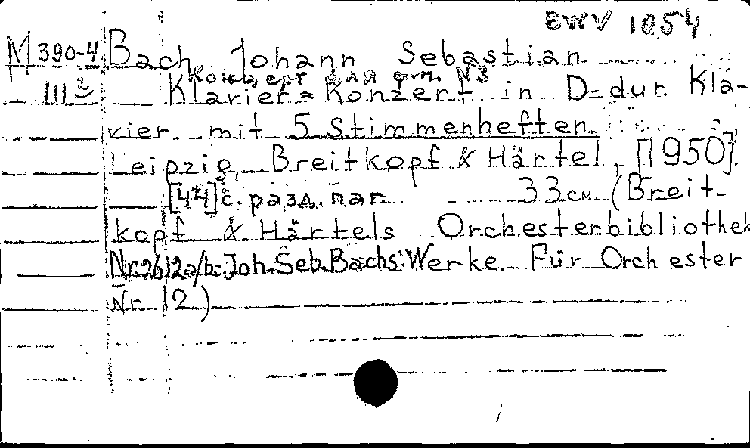 BWV 1054
M 390-4 Bach, Johann Sebastian
Концерт для фп. №3
III 2 Klavier=Konzert in D=dur. Kla-
vier mit 5 Stimmenheften.
Leipzig, Breitkopf & Härtel, [1950].
[44] с. разд. паг. 33 см (Breit-
kopf & Härtels Orchesterbibliothek
Nr. 2612a/b: Joh. Seb. Bachs Werke. Für Orchester
Nr. 12)